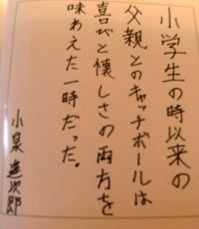 小学生の時以来の
父親とのキャッチボールは
喜びと懐しさの両方を
味わえた一時だった。
小泉進次郎